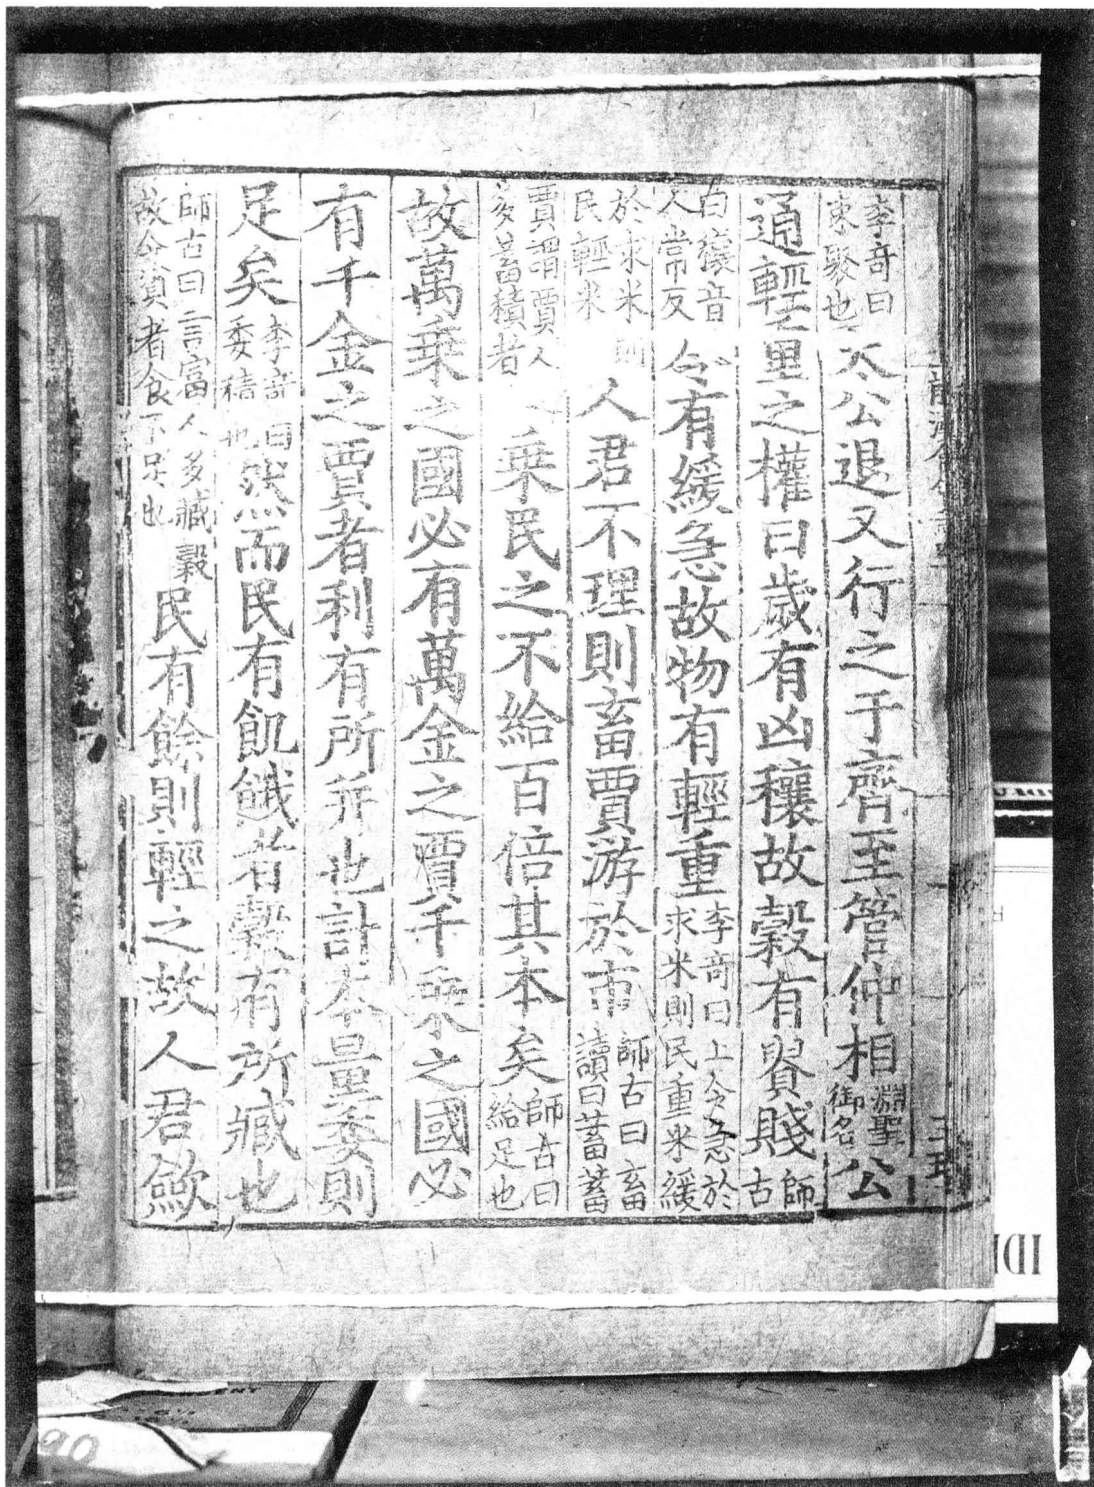 李奇曰
束聚也 太公退又行之于齊至管仲相 淵聖
御名 公
通輕重之權曰歲有凶穰故穀有貴賤 師
古
曰穰音
人常反 令有緩急故物有輕重 李奇曰上令急於
求米則民重米緩
於求米則
民輕米 人君不理則畜賈游於市 師古曰畜
讀曰蓄蓄
賈謂賈人
多蓄積者 乗民之不給百倍其本矣 師古曰
給足也
故萬乗之國必有萬金之賈千乗之國必
有千金之賈者利有所并也計本量委則
足矣 李奇曰
委積也 然而民有飢餓者穀有所臧也
師古曰言富人多藏穀
故令貧者食不足也 民有餘則輕之故人君歛